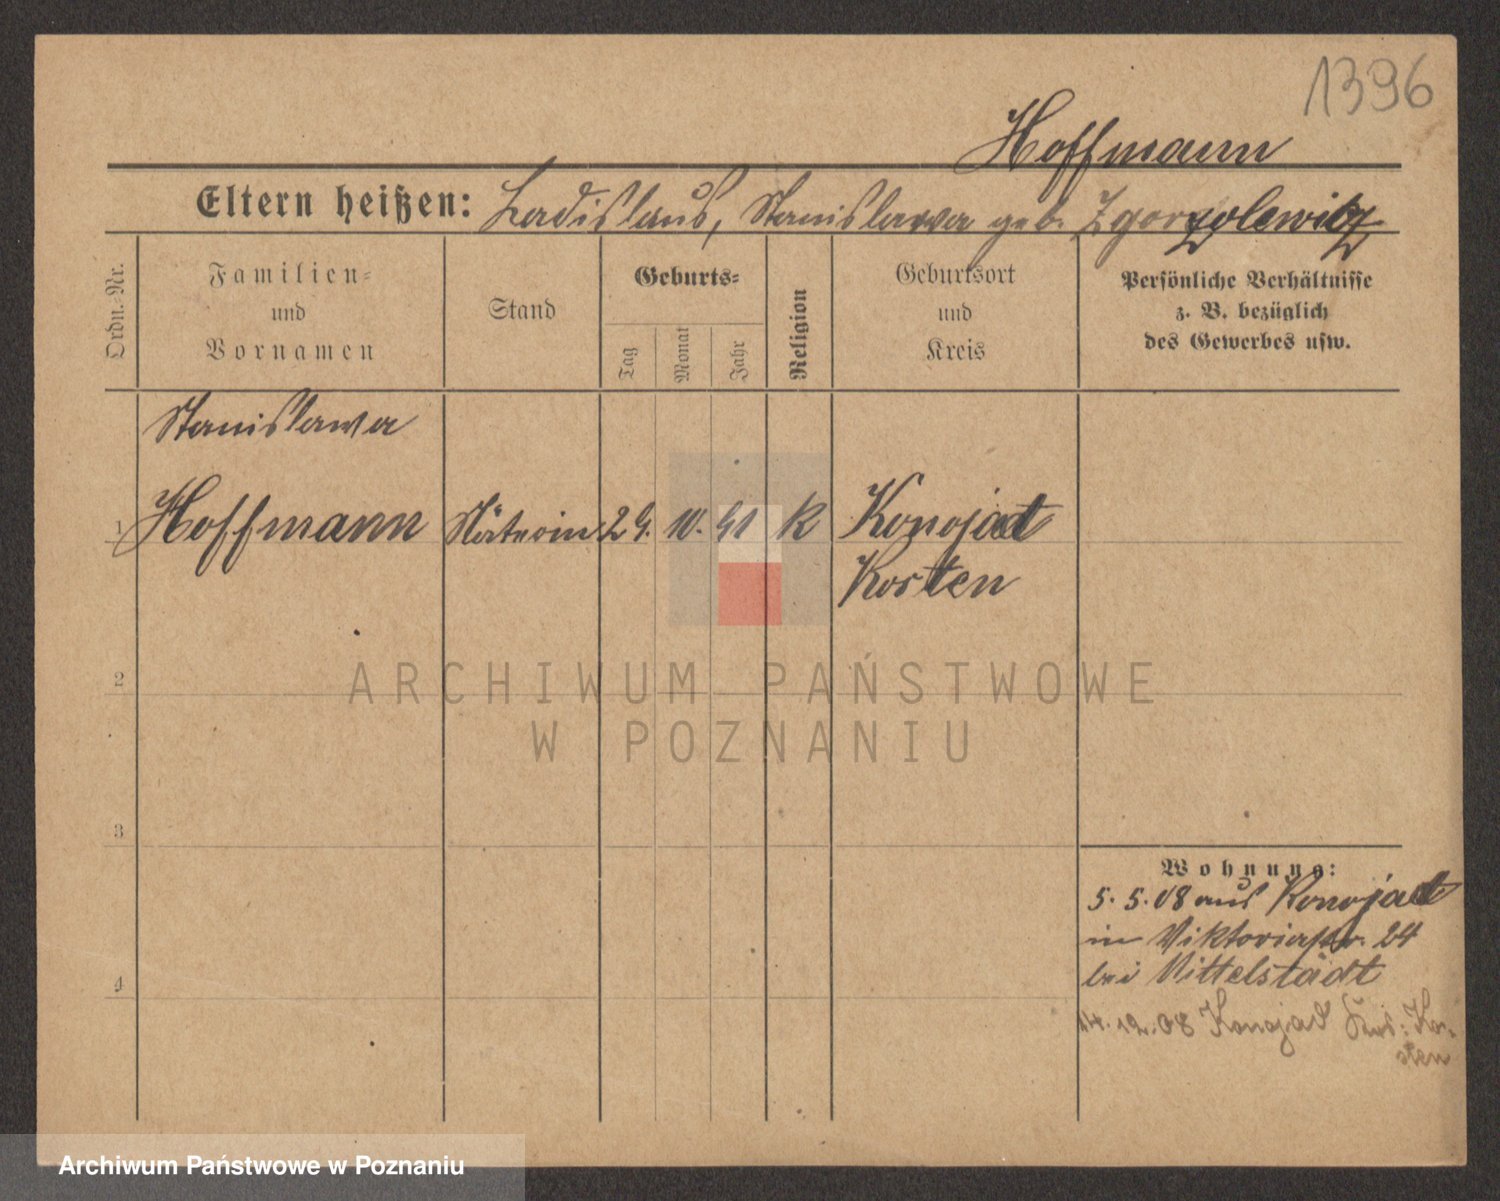 1396
Hoffmann
Eltern heißen: Ladislaus, Stanislawa geb. Zgorzolewicz
Ordn.-Nr.
Familien-
und
Vornamen
Stand
Geburts-
Tag
Monat
Jahr
Religion
Geburtsort
und
Kreis
Persönliche Verhältnisse
z. B. bezüglich
des Gewerbes usw.
Stanislawa
1 Hoffmann Näterin 29. 10. 91 K Konojad
Kosten
2
ARCHIWUM PAŃSTWOWE
W POZNANIU
3
Wohnung:
5. 5. 08 aus Konojad
in Viktoriastr. 24
4
bei Mittelstädt
14. 12. 08 Konojad Krs: Ko-
sten
Archiwum Państwowe w Poznaniu